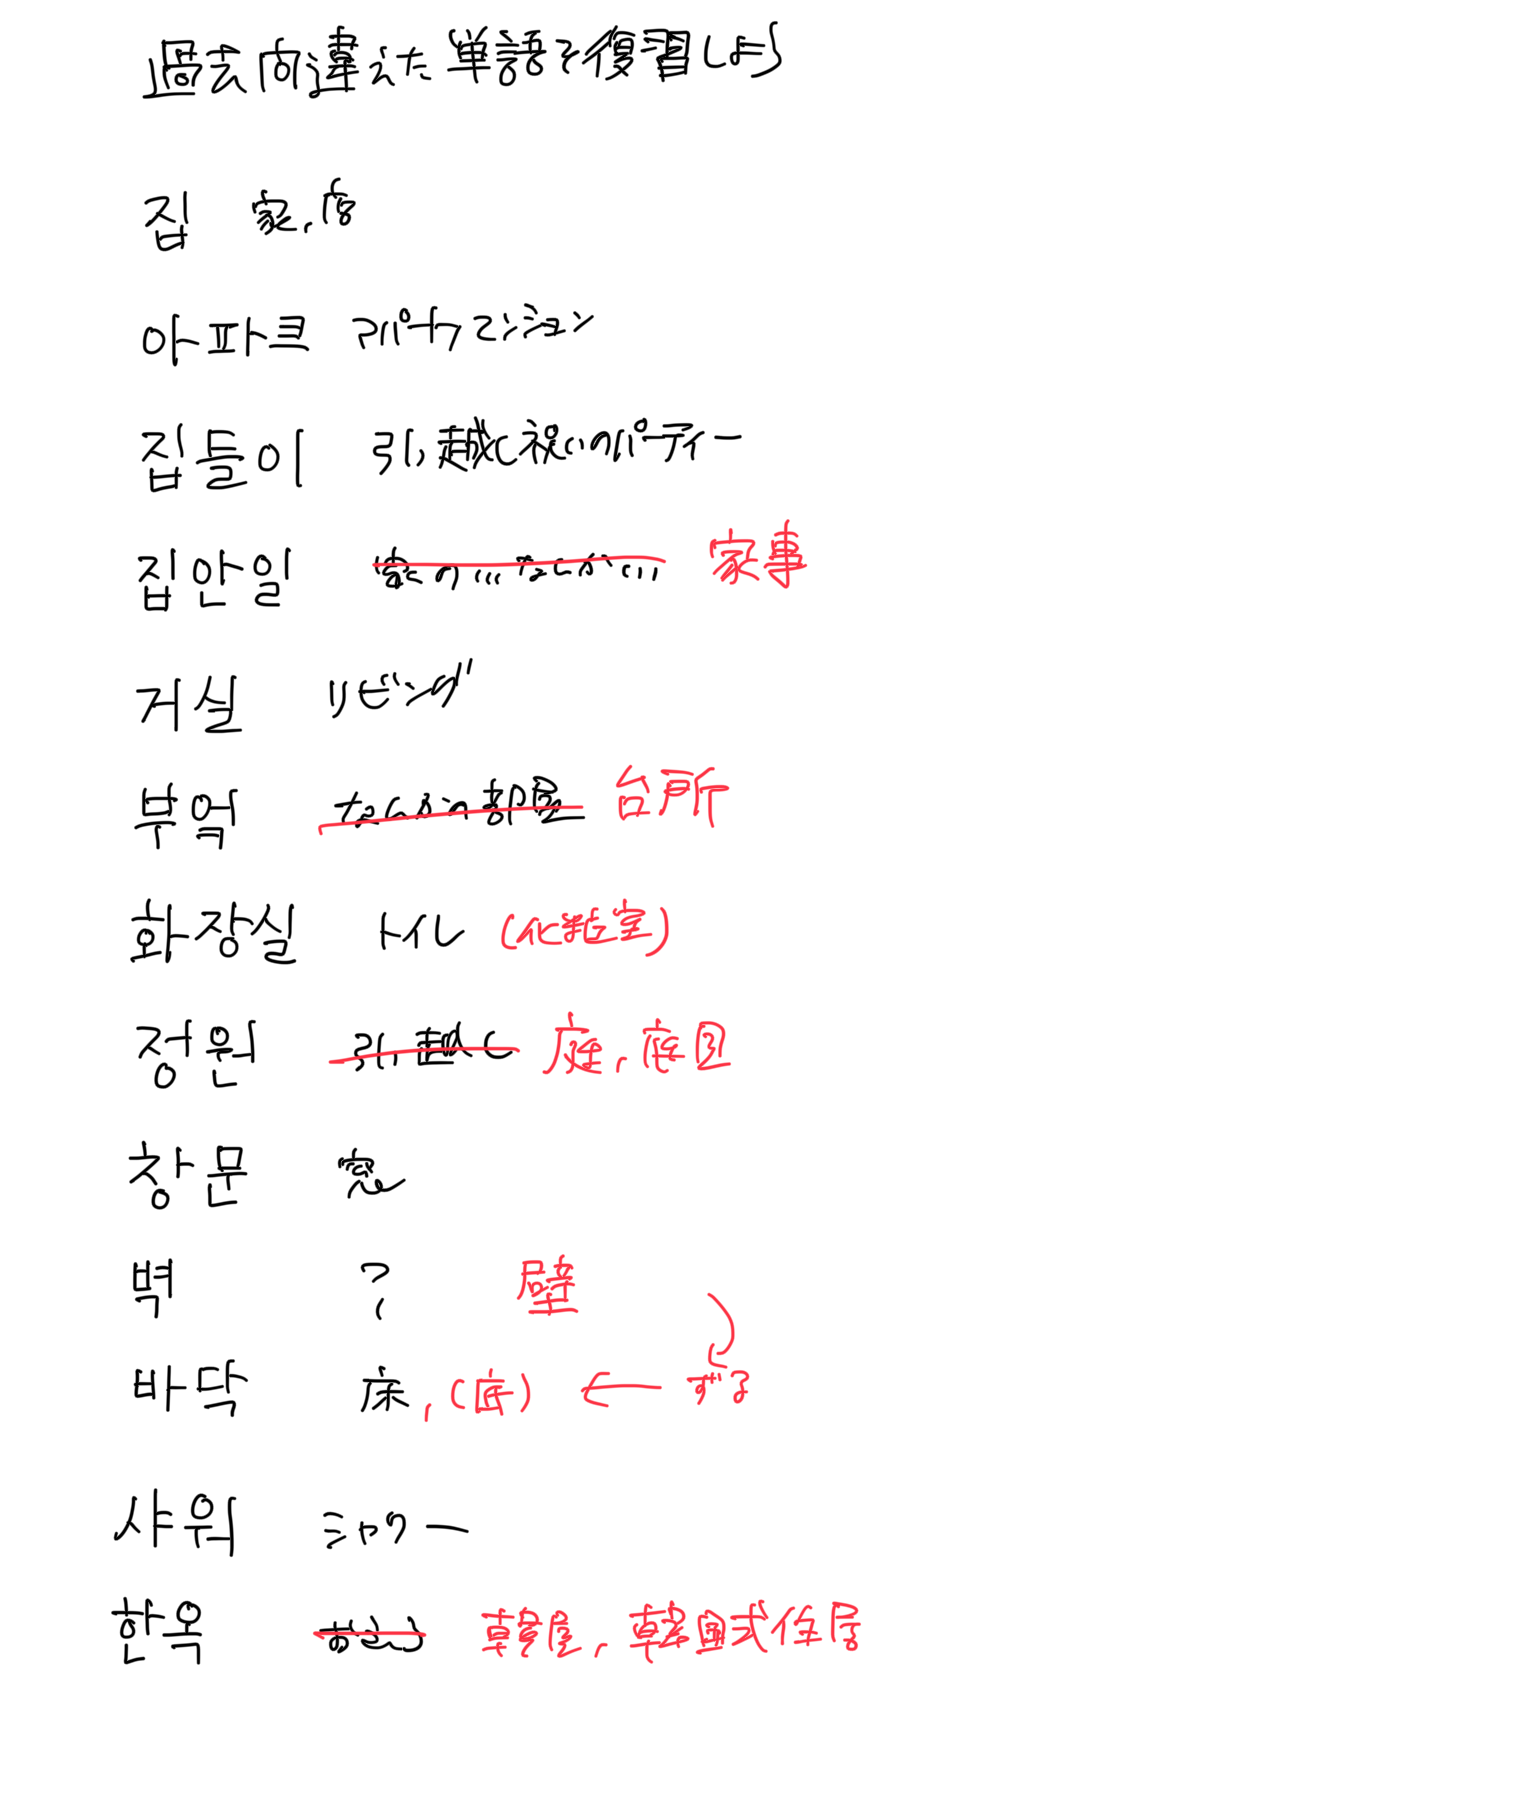 過去間違えた単語を復習しよう
집 家,店
아파트 アパート マンション
집들이 引っ越し祝いのパーティー
집안일 家の…なんか… 家事
거실 リビング
부엌 なんかの部屋 台所
화장실 トイレ (化粧室)
정원 引っ越し 庭,庭園
창문 窓
벽 ? 壁
바닥 床,(底) ← ずる
샤워 シャワー
한옥 韓屋,韓国式住居